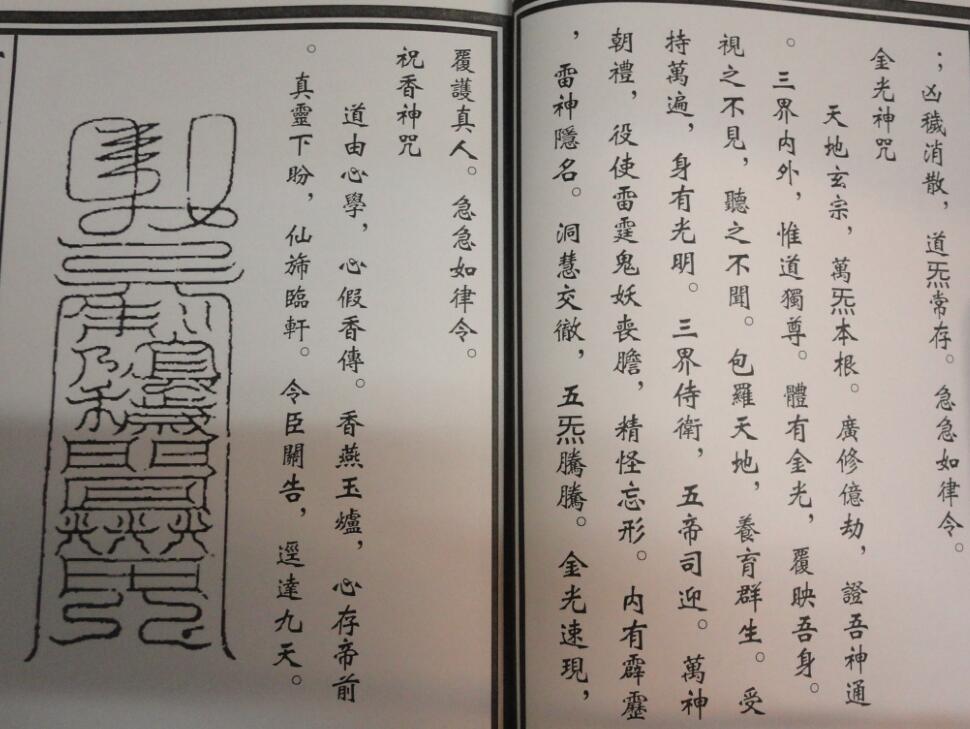 ；凶穢消散，道炁常存。急急如律令。
金光神咒
天地玄宗，萬炁本根。廣修億劫，證吾神通
。三界内外，惟道獨尊。體有金光，覆映吾身。
視之不見，聽之不聞。包羅天地，養育群生。受
持萬遍，身有光明。三界侍衛，五帝司迎。萬神
朝禮，役使雷霆鬼妖喪膽，精怪忘形。内有霹靂
，雷神隱名。洞慧交徹，五炁騰騰。金光速現，
覆護真人。急急如律令。
祝香神咒
道由心學，心假香傳。香燕玉爐，心存帝前
。真靈下盼，仙旆臨軒。令臣關告，逕達九天。